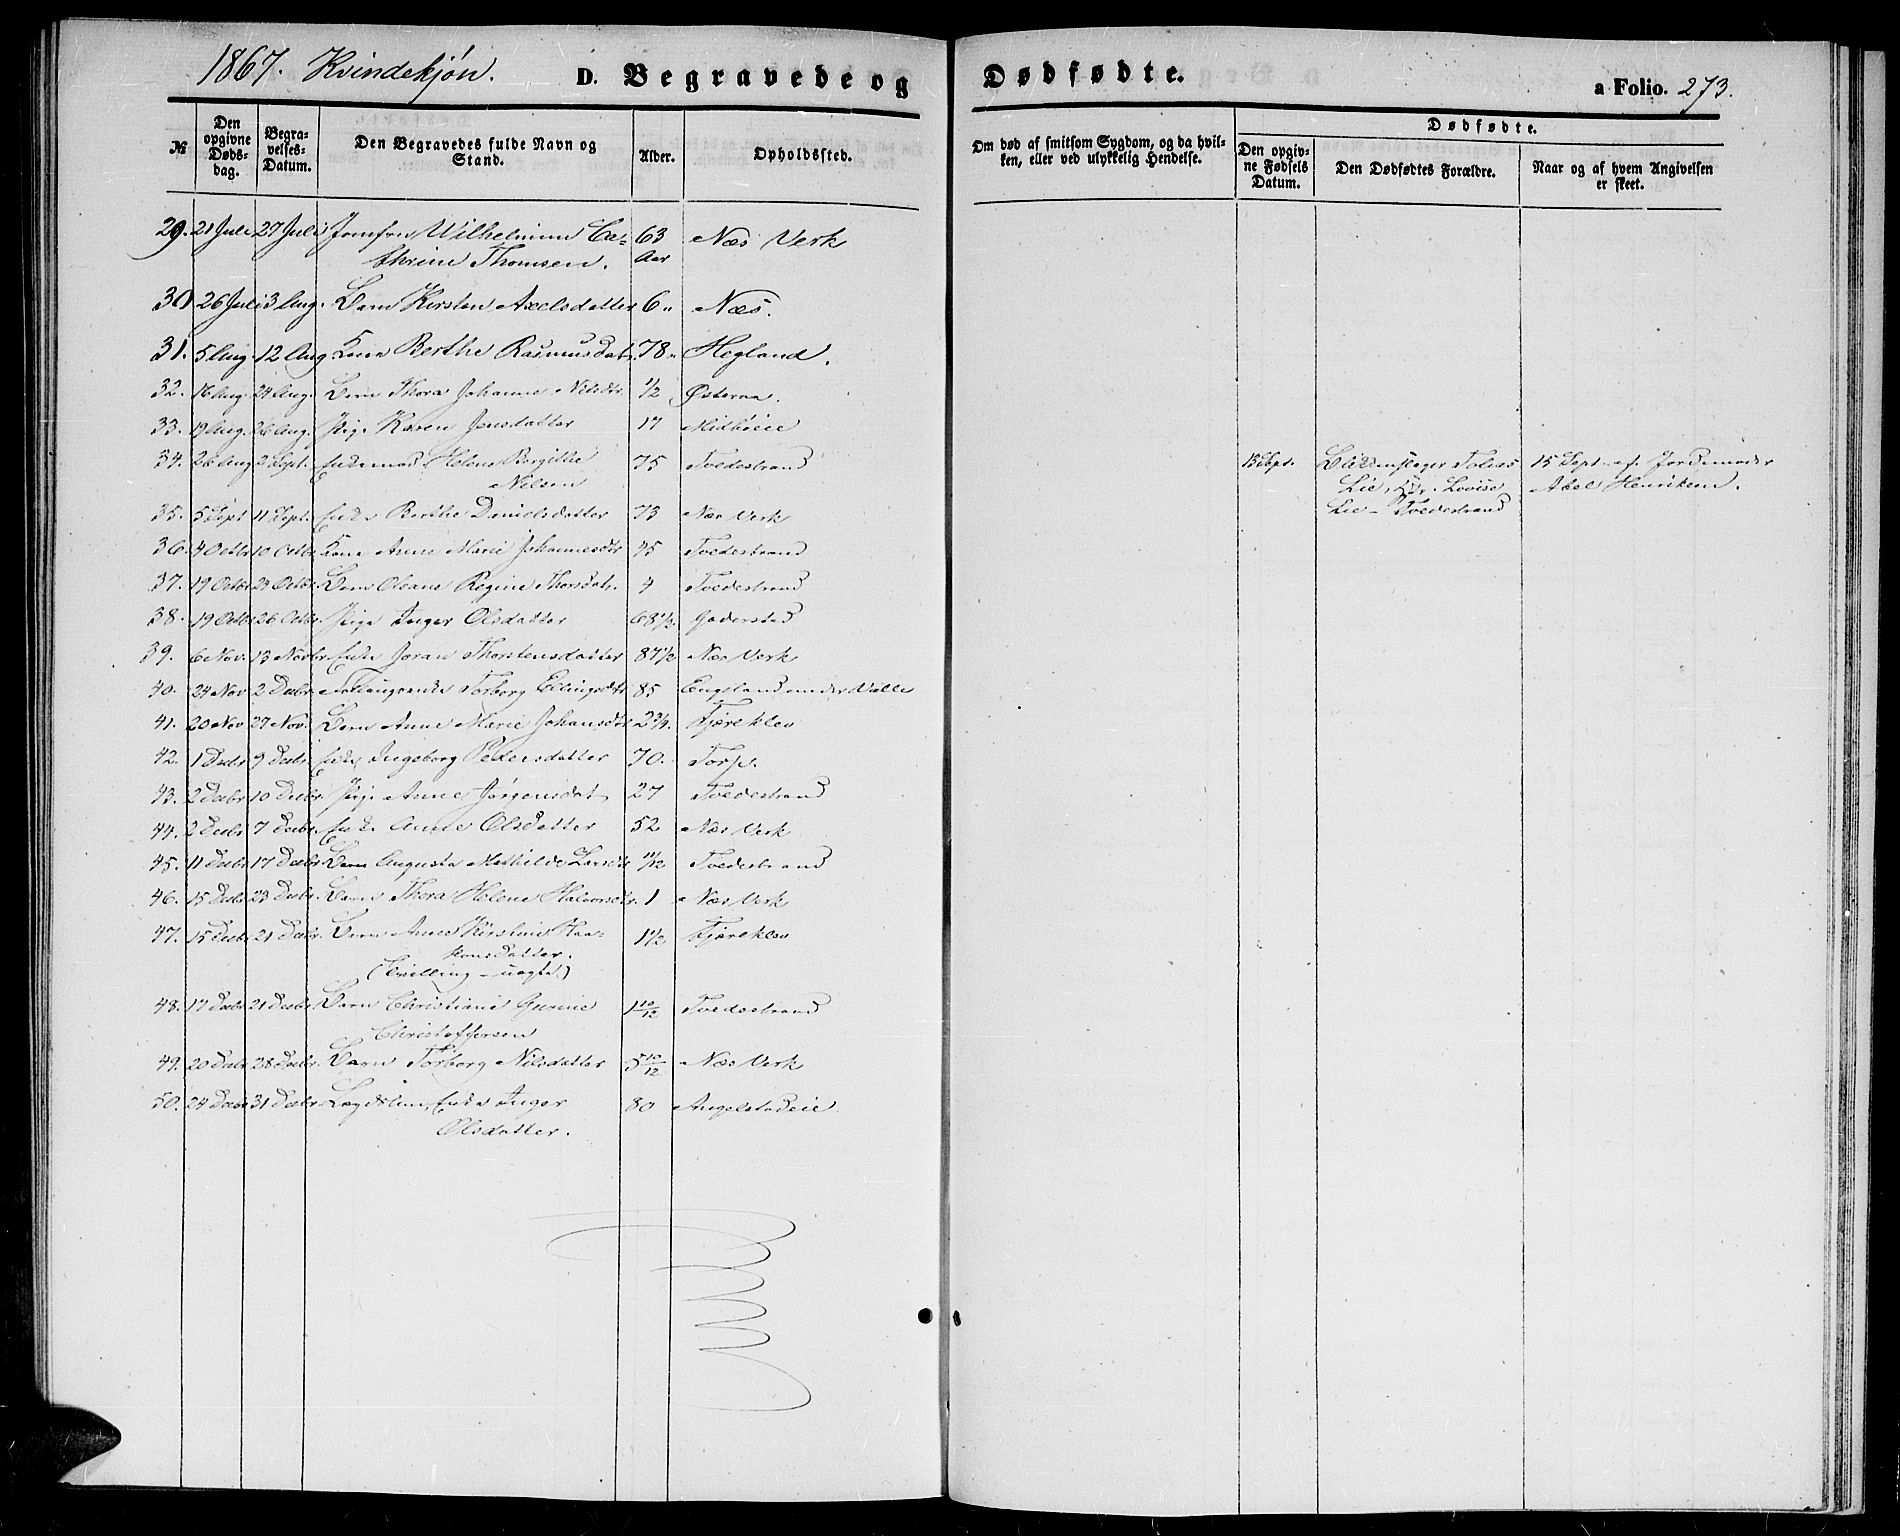 1867. Kvindekjøn. D. Begravede og Dødfødte. a Folio. 273.
№ Den opgivne Døds-dag. Begra-velses-Datum. Den Begravedes fulde Navn og Stand. Alder. Opholdssted. Om død af smitsom Sygdom, og da hvil-ken, eller ved ulykkelig Hendelse. Dødfødte. Den opgiv-ne Fødsels Datum. Den Dødfødtes Forældre. Naar og af hvem Angivelsen er skeet.
29. 21 Juli 27 Juli Jomfru Wilhelmine Ca- 63 Næs Verk
thrine Thomsen. Aar
30 26 Juli 3 Aug. Barn Kirsten Axelsdatter 6 " Næs.
31. 5 Aug. 12 Aug Kone Berthe Rasmusdatr. 78 " Hegland.
32. 16 Aug. 24 Aug. Barn Thora Johanne Nilsdtr. 1/2 Østeraa.
33. 19 Aug. 26 Aug. Pige Karen Jensdatter 17
34. 26 Aug 2 Sept. Helene Borgitte 75 Tvedestrand
Nilsen
15 Sept. Tobias 15 Sept. af Jordemoder
Lie, Lovise Abel Henriksen.
Lie - Tvedestrand
35. 5 Sept 11 Sept. Enke Berthe Danielsdatter 73 Næs Verk
36. 4 Octbr 10 Octbr. Kone Anne Marie Johannesdtr 45 Tvedestrand
37. 19 Octbr 23 Octbr. Barn Oleane Regine Thorsdatr. 4 Tvedestrand
38. 19 Octbr 26 Octbr. Pige Inger Olsdatter 68 1/2 Goderstad
39. 6 Nov. 13 Novbr Enke Joran Thorstensdatter 87 1/2 Næs Verk
40. 24 Nov 2 Decbr. Torborg Ellingsdtr 85 Engeland under Valle
41. 20 Nov 27 Nov. Barn Anne Marie Johansdtr 2 3/4. Fjæreklev
42. 1 Decbr 9 Decbr. Enke Ingeborg Pedersdatter 70. Torp.
43. 2 Decbr 10 Decbr. Pige Anne Jørgensdat 27 Tvedestrand
44. 2 Decbr 7 Decbr. Enke Anne Olsdatter 52 Næs Verk
45. 11 Decbr 17 Decbr. Barn Augusta Mathilde Larsdtr 11/12 Tvedestrand
46. 15 Decbr 23 Decbr. Barn Thora Helene Halvorsdtr. 1 Næs Verk
47. 15 Decbr 21 Decbr. Barn Anne Kirstine Haa- 1 1/2 Fjæreklev
konsdatter.
(Tvilling - uægte)
48. 17 Decbr 21 Decbr. Barn Christiane Gurine 1 10/12 Tvedestrand
Christoffersen
49. 20 Decbr 28 Decbr. Barn Torborg Nilsdatter 5 10/12 Næs Verk
50. 24 Decbr 31 Decbr. Lægdslem, Enke Inger 80 Angelstadeie
Olsdatter.